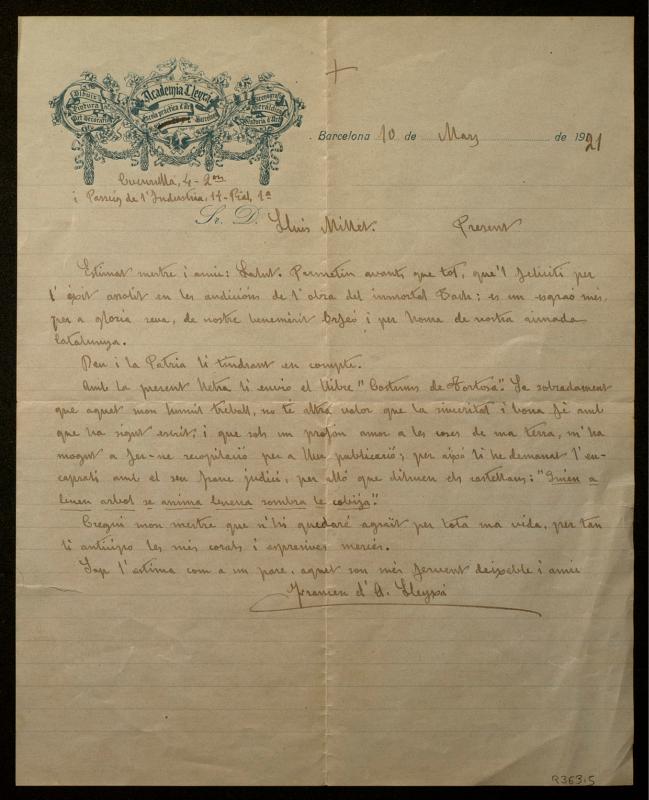 +
Dibuix
Pintura
Art Decoratiu
Academia Lleyxá
Escola práctica d'Art
Barcelona
Escenografia
Heráldica
Historia d'Art
Barcelona 10 de Mars de 1921
4 - 2on
i Passeig de l'Industria, 14 - Pral, 1ª
Sr. D. Lluis Millet. Present
Estimat mestre i amic: Salut. Permetin avants que tot, que'l feliciti per
l'éxit assolit en les audicións de l'obra del inmortal Bach: es un esgraó més
per a gloria seva, de nostre benemérit Orfeó i per honra de nostra aimada
Catalunya.
Deu i la Patria li tindrant en compte.
Amb la present lletra li envio el llibre "Costums de Tortosa". Se sobradament
que aquet mon humil treball, no té altra valor que la sinceritat i bona fé amb
que ha sigut escrit, i que sols un profón amor a les coses de ma terra, m'ha
mogut a fer-ne recopilació per a llur publicació; per aixó li he demanat l'en-
capsali amb el seu franc judici, per alló que dihuen els castellans: "Quien a
buen arbol se arrima buena sombra le cobija".
Cregui mon mestre que n'hi quedaré agraït per tota ma vida, per tan
li anticipo les més corals i expresives mercés.
Sap l'estima com a un pare, aquet son més fervent deixeble i amic
Francesc d'A. Lleyxá
R363.5